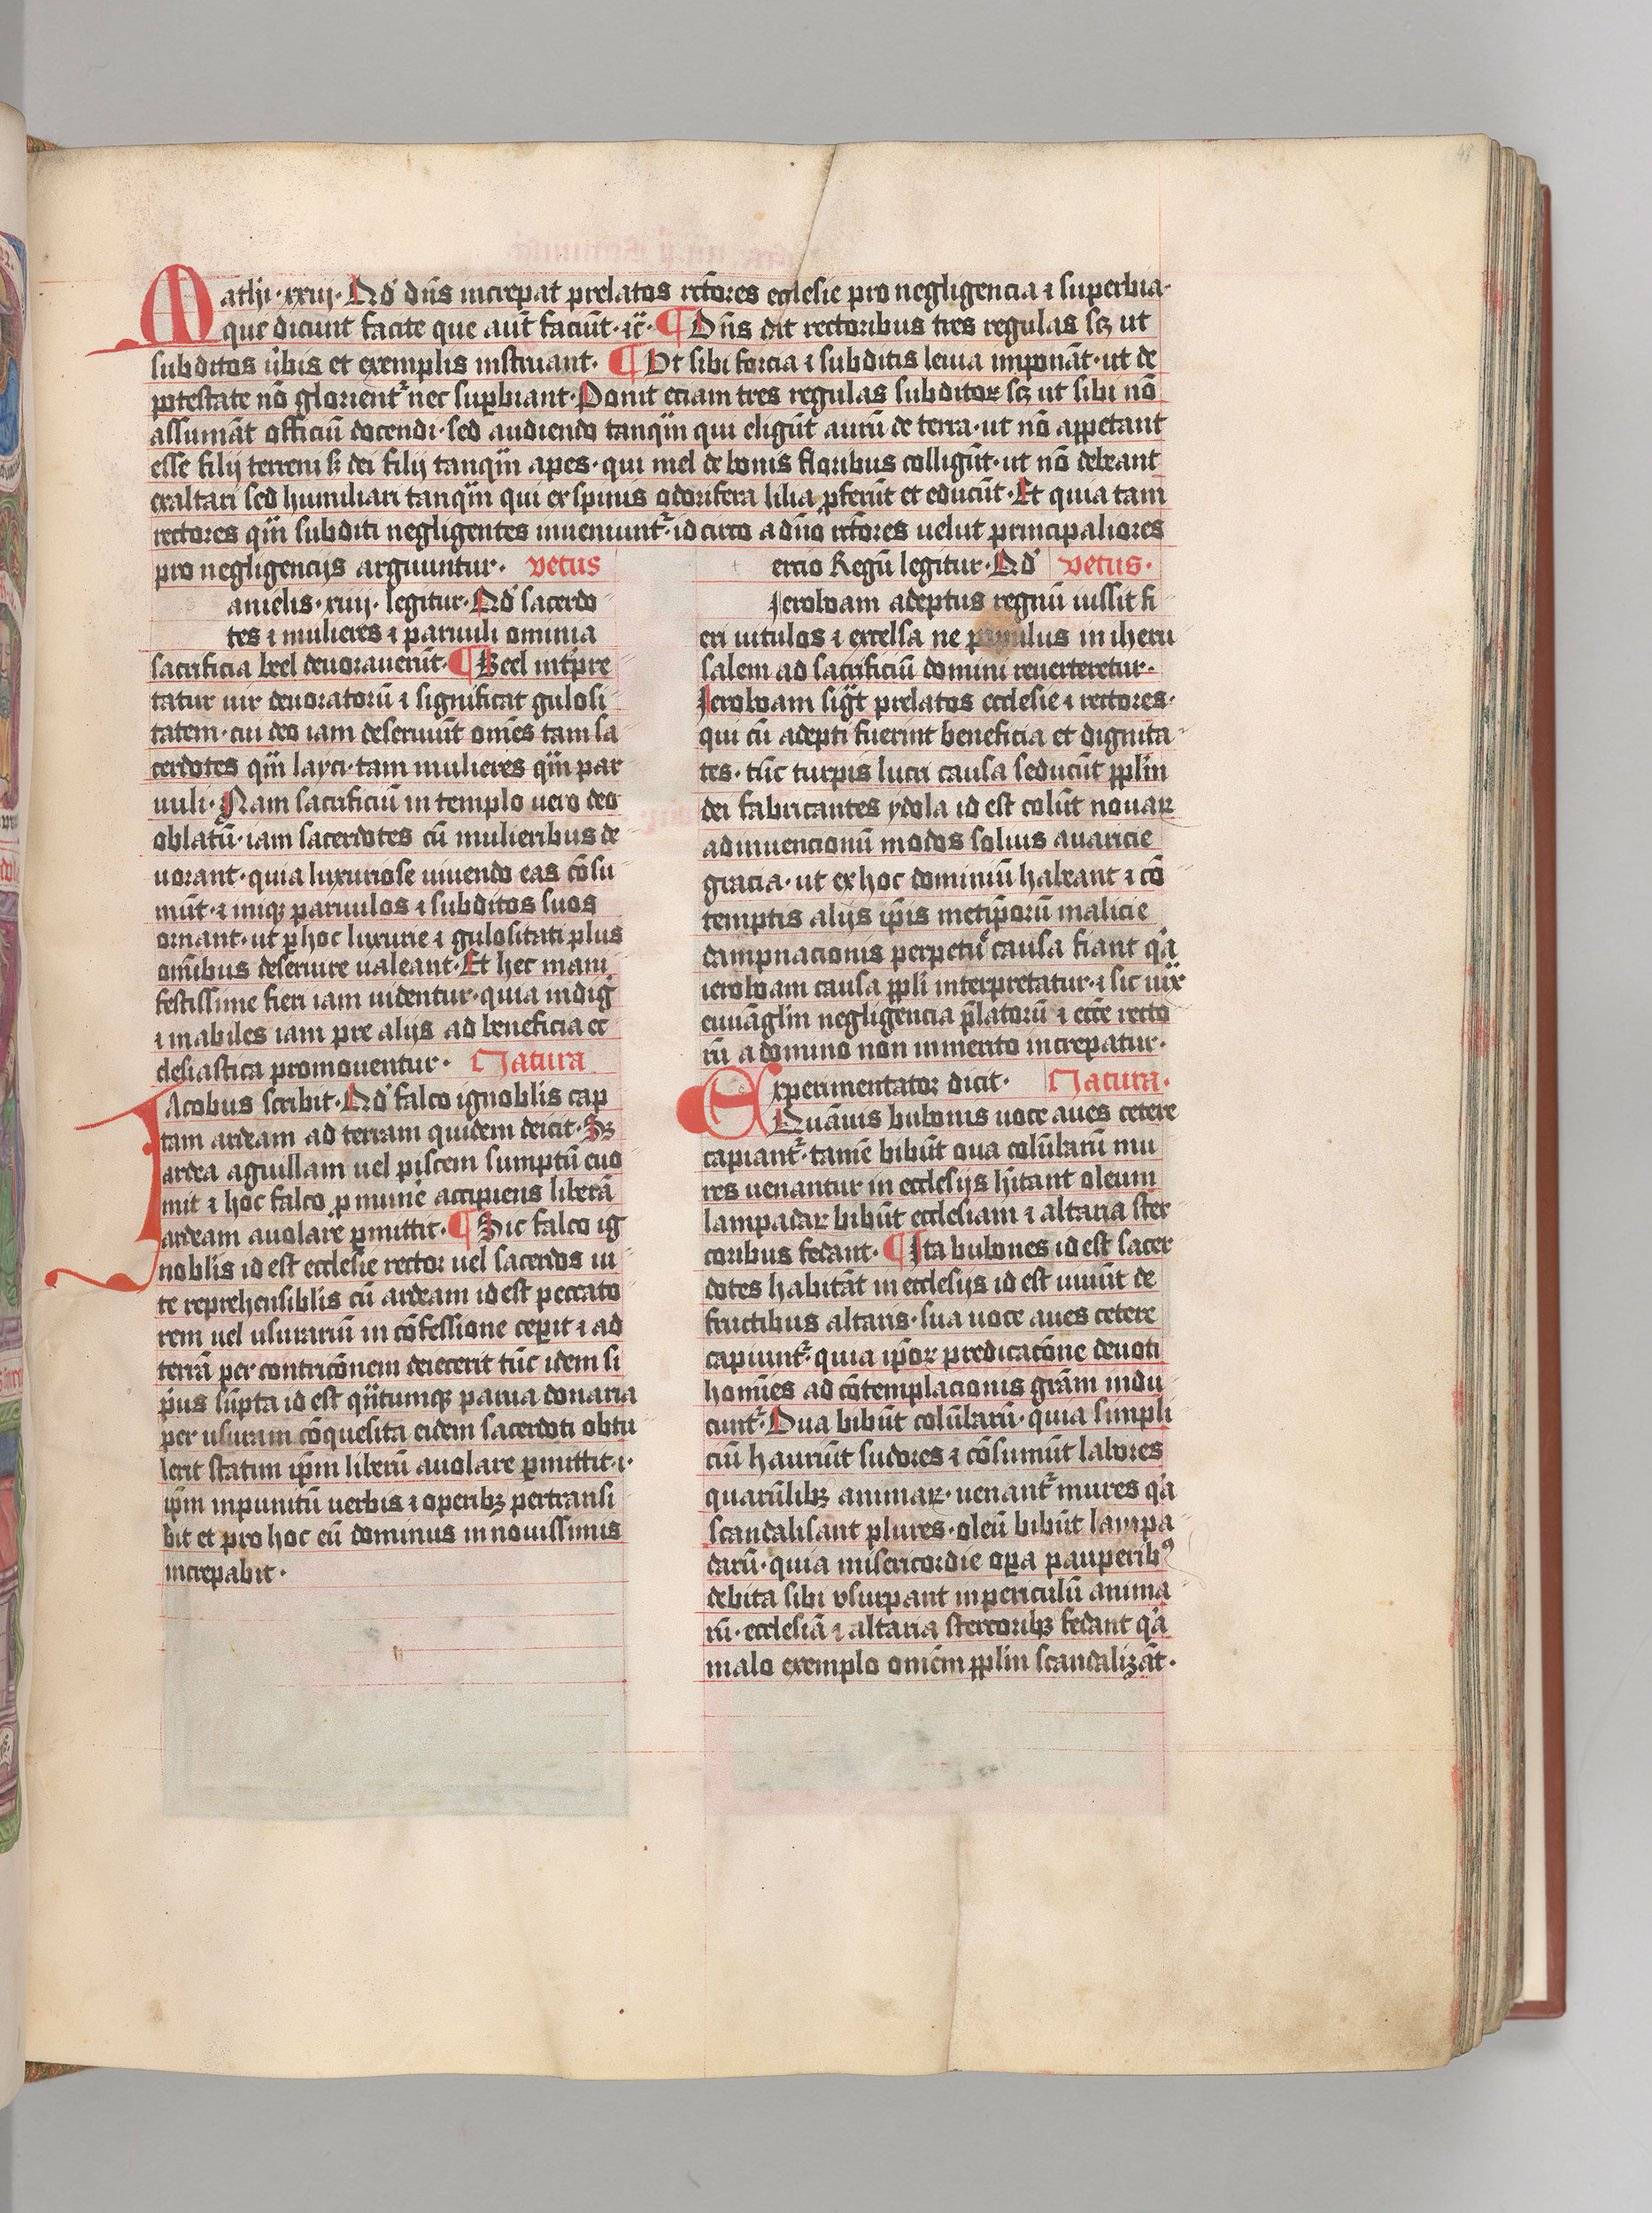 Mathi·xxiij·Qd' dn̄s increpat prelatos rectores ecclesie pro negligencia ⁊ superbia·
que dicunt facite que aut̄ faciūt·⁊c̄·¶Dn̄s dat rectoribus tres regulas scꝫ ut
subditos ūbis et exemplis instruant·¶Ut sibi forcia ⁊ subditis leuia imponāt·ut de
potestate nō gloriēnt᷑ nec suꝑbiant·Ponit eciam tres regulas subditoꝝ scꝫ ut sibi nō
assumāt officiū docendi·sed audiendo tanqm̄ qui eligūt aurū de terra·ut nō appetant
esse filij terreni sꝫ dei filij tanqm̄ apes·qui mel de bonis floribus colligūt·ut nō debeant
exaltari sed humiliari tanqm̄ qui ex spinis odorifera lilia ꝓferūt et educūt·Et quia tam
rectores qm̄ subditi negligentes inueniunt᷑·id circo a dn̄o rc̄tores uelut principaliores
pro negligencijs arguuntur· vetus
anielis·xiiij·legitur·Qd' sacerdo
tes ⁊ mulieres ⁊ paruuli omnia
sacrificia beel deuorauerūt·¶Beel int'pre
tatur uir deuoratorū ⁊ significat gulosi
tatem·cui deo iam deseruiūt om̄es tam sa
cerdotes qm̄ layci·tam mulieres qm̄ par
uuli·Nam sacrificiū in templo uero deo
oblatū·iam sacerdotes cū mulieribus de
uorant·quia luxuriose uiuendo eas cōsu
mūt·⁊ inuqꝫ paruulos ⁊ subditos suos
ornant·ut ꝑ hoc luxurie ⁊ gulositati plus
om̄ibus deseruire ualeant·Et hec mani
festissime fieri iam uidentur·quia indig
⁊ inabiles iam pre alijs ad beneficia ec
clesiastica promouentur· Natura
Iacobus scribit·Qd' falco ignoblis cap
tam ardeam ad terram quidem deicit·Sꝫ
ardea aguillam uel piscem sumptū euo
mit ⁊ hoc falco ꝓ munīe accipiens liberā
ardeam auolare ꝑmittit·¶Sic falco ig
noblis id est ecclesie rector uel sacerdos ui
te reprehensiblis cū ardeam id est peccato
rem uel usurariū in cōfessione ceꝑit ⁊ ad
terrā per contricōnem deiecerit tūc idem si
p̄us sūpta id est qn̄tumqꝫ parua donaria
per usuram cōquesita eidem sacerdoti obtu
lerit statim ip̄m liberū auolare ꝑmittit·i·
ip̄m inpunitū uerbis ⁊ operibꝫ pertransi
bit et pro hoc eū dominus in nouissimis
increpabit·
ercio Regū legitur·Qd' vetus·
Ieroboam adeptus regnū iussit fi
eri uitulos ⁊ excelsa ne populus in iheru
salem ad sacrificiū domini reuerteretur·
Ieroboam sigt̄ prelatos ecclesie ⁊ rectores·
qui cū adepti fuerint beneficia et dignita
tes·tūc turpis lucri causa seducūt ppl̄m
dei fabricantes ydola id est colūt nouaꝝ
adinuencionū modos solius auaricie
gracia·ut ex hoc dominiū habeant ⁊ cō
temptis alijs ip̄is metip̄orū malicie
dampnacionis perpetue causa fiant q'a
ieroboam causa ppl̄i interpretatur·⁊ sic iux̄
euuāgl̄m negligencia p̄latorū ⁊ ecc̄e recto
rū a domino non inmerito increpatur·
Experimentator dicit· Natura·
Quāuis bubonis uoce aues cetere
capiant᷑·tamē bibūt oua colūbarū mu
res uenantur in ecclesijs hītant oleum
lampadaꝝ bibūt ecclesiam ⁊ altaria ster
coribus fedant·¶Ita bubones id est sacer
dotes habitāt in ecclesijs id est uiuūt de
fructibus altaris·sua uoce aues cetere
capiunt᷑·quia ip̄oꝝ predicacōne deuoti
homīes ad cōtemplacionis grām indu
cunt᷑·Oua bibūt colūbarū·quia simpli
ciū hauriūt sudores ⁊ cōsumūt labores
quarūlibꝫ animaꝝ·uenant᷑ mures q'a
scandalisant plures·oleū bibūt lampa
darū·quia misericordie oꝑa pauperibꝰ
debita sibi vsurpant in periculū anima
rū·ecclesiā ⁊ altaria stercoribꝫ fedant q'a
malo exemplo omēm ppl̄m scandalizāt·